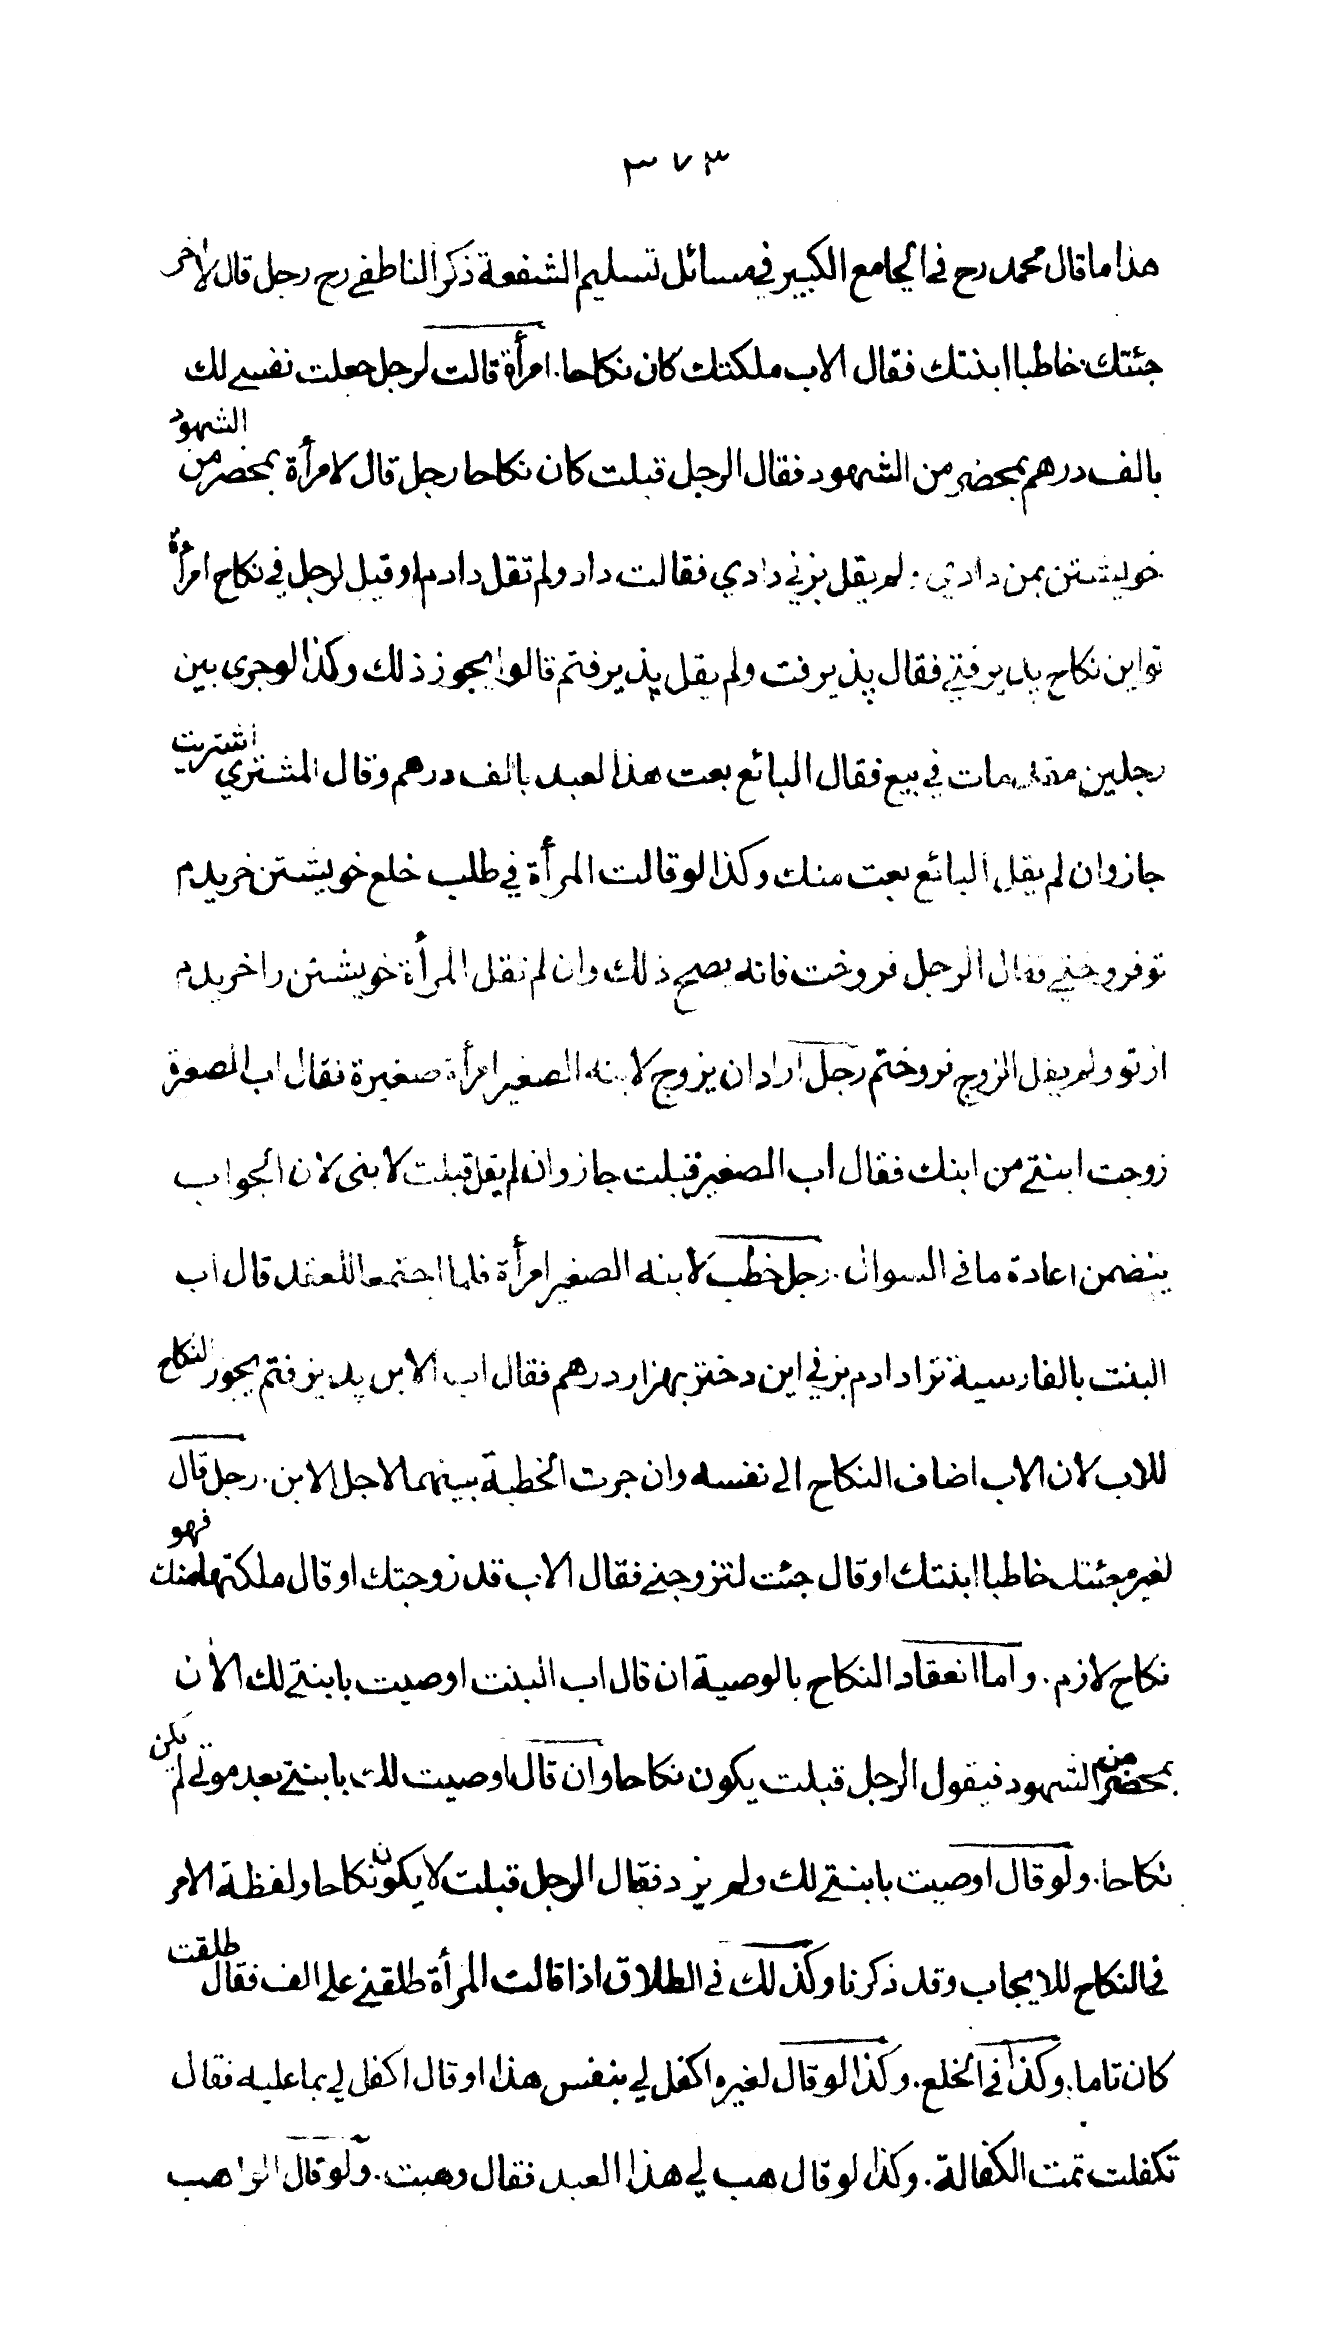 ٣٧٣
هذا ما قال محمد رح في الجامع الكبير في مسائل تسليم الشفعة ذكر الناطفي رح رجل قال لاخر
جئتك خاطبا ابنتك فقال الاب ملكتك كان نكاحا. امرأة قالت لرجل جعلت نفسي لك
بالف درهم بمحضر من الشهود فقال الرجل قبلت كان نكاحا رجل قال لامرأة بمحضر من الشهود
خويشتن بمن دادي ولم يقل بزني دادي فقالت داد ولم تقل دادم او قيل لرجل في نكاح امرأة
تو اين نكاح پذيرفتي فقال پذيرفت ولم يقل پذيرفتم قالوا يجوز ذلك وكذا لو جرى بين
رجلين مقدمات في بيع فقال البائع بعت هذا لعبد بالف درهم وقال المشتري اشتريت
جاز وان لم يقل البائع بعت منك وكذا لو قالت المرأة في طلب خلع خويشتن خريدم
تو فروختي فقال الرجل فروخت فانه يصح ذلك وان لم نقل المرأة خويشتن را خريدم
از تو ولم يقل الزوج فروختم رجل اراد ان يزوج لابنه الصغير امرأة صغيرة فقال اب الصغيرة
زوجت ابنتي من ابنك فقال اب الصغير قبلت جاز وان لم يقل قبلت لابنى لان الجواب
يتضمن اعادة ما في السوال. رجل خطب لابنه الصغير امرأة فلما اجتمعا للعقد قال اب
البنت بالفارسية ترا دادم بزني اين دختر بهزار درهم فقال اب الابن پذيرفتم يجوز النكاح
للاب لان الاب اضاف النكاح الى نفسه وان جرت الخطبة بينهما لاجل الابن. رجل قال
لغيره جئتك خاطبا ابنتك او قال جئت لتزوجني فقال الاب قد زوجتك او قال ملكتها منك فهو
نكاح لازم. واما انعقاد النكاح بالوصية ان قال اب البنت اوصيت بابنتي لك الان
بمحضر من الشهود فيقول الرجل قبلت يكون نكاحا وان قال اوصيت لك بابنتي بعد موتي لم يكن
نكاحا. ولو قال اوصيت بابنتي لك ولم يزد فقال الرجل قبلت لا يكون نكاحا ولفظة الامر
في النكاح للايجاب وقد ذكرنا وكذلك في الطلاق اذا قالت المرأة طلقني على الف فقال طلقت
كان تاما. وكذا في الخلع. وكذا لو قال لغيره اكفل لي بنفس هذا او قال اكفل لي بما عليه فقال
تكفلت تمت الكفالة. وكذا لو قال هب لي هذا العبد فقال وهبت. ولو قال الواهب